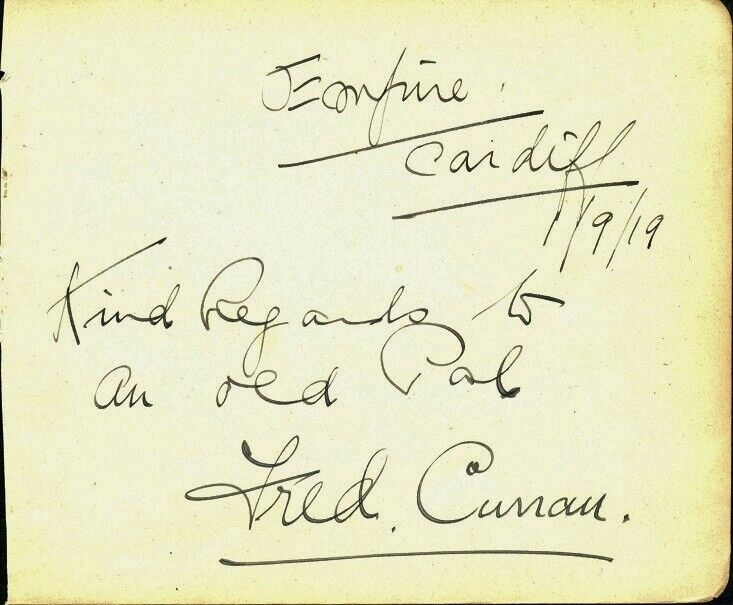 Empire.
Cardiff
1/9/19
Kind Regards to
an old Pal
Fred. Curran.